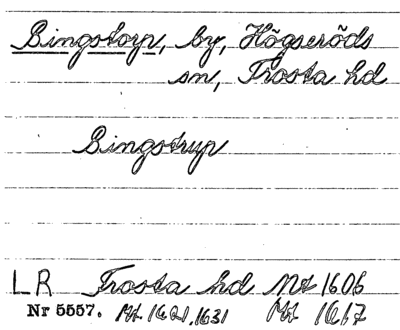 Bingstorp, by, Högseröds
sn, Frosta hd
Bingstrup
LR Frosta hd Mt 1606
Nr 5557. Mt 1621, 1631 Mt 1617